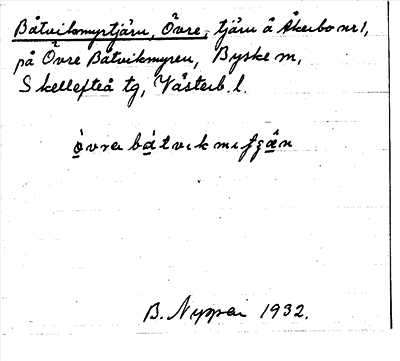 Båtvikmyrtjärn, Övre, tjärn å Åkerbo nr 1,
på Övre Båtvikmyren, Byske sn,
Skellefteå tg, Västerb. l.
övrebåtvikmɩ
B. Nyman 1932.